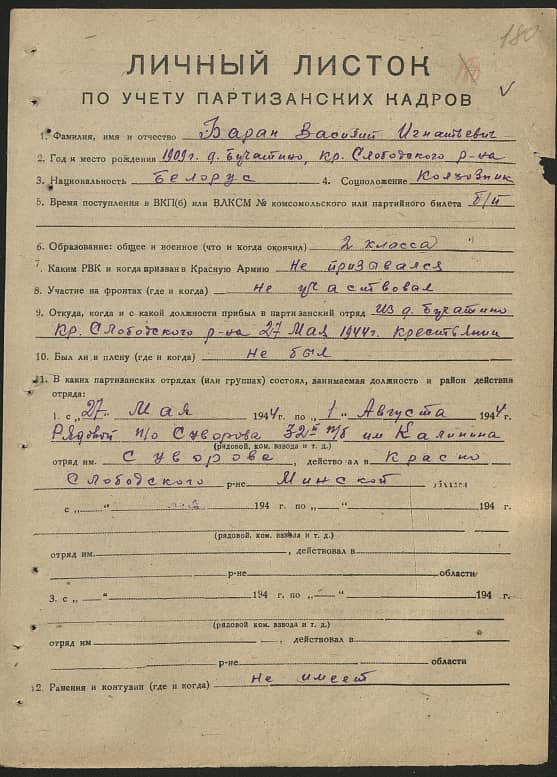 180
ЛИЧНЫЙ ЛИСТОК
ПО УЧЕТУ ПАРТИЗАНСКИХ КАДРОВ
1. Фамилия, имя и отчество Баран Василий Игнатьевич
2. Год и место рождения 1909г. д. Бучатино, Кр. Слободского р-на
3. Национальность Белорус 4. Соцположение Колхозник
5. Время поступления в ВКП(б) или ВЛКСМ № комсомольского или партийного билета б/п
6. Образование: общее и военное (что и когда окончил) 2 класса
7. Каким РВК и когда призван в Красную Армию Не призывался
8. Участие на фронтах (где и когда) Не участвовал
9. Откуда, когда и с какой должности прибыл в партизанский отряд Из д. Бучатино
Кр. Слободского р-на 27 Мая 1944г. крестьянин
10. Был ли в плену (где и когда) Не был
11. В каких партизанских отрядах (или группах) состоял, занимаемая должность и район действия
отряда:
1. с „27" Мая 1944 г. по „1" Августа 1944 г.
Рядовой п/о Суворова 32й п/б им Калинина
(рядовой, ком. взвода и т. д.)
отряд им. Суворова, действовал в Красно
Слободского р-не Минской области
с „ " 194 г. по „ " 194 г.
(рядовой, ком. взвода и т. д.)
отряд им. , действовал в
р-не области
3. с „ " 194 г. по „ " 194 г.
(рядовой, ком. взвода и т. д.)
отряд им , действовал в
р-не области
12. Ранения и контузии (где и когда) Не имеет